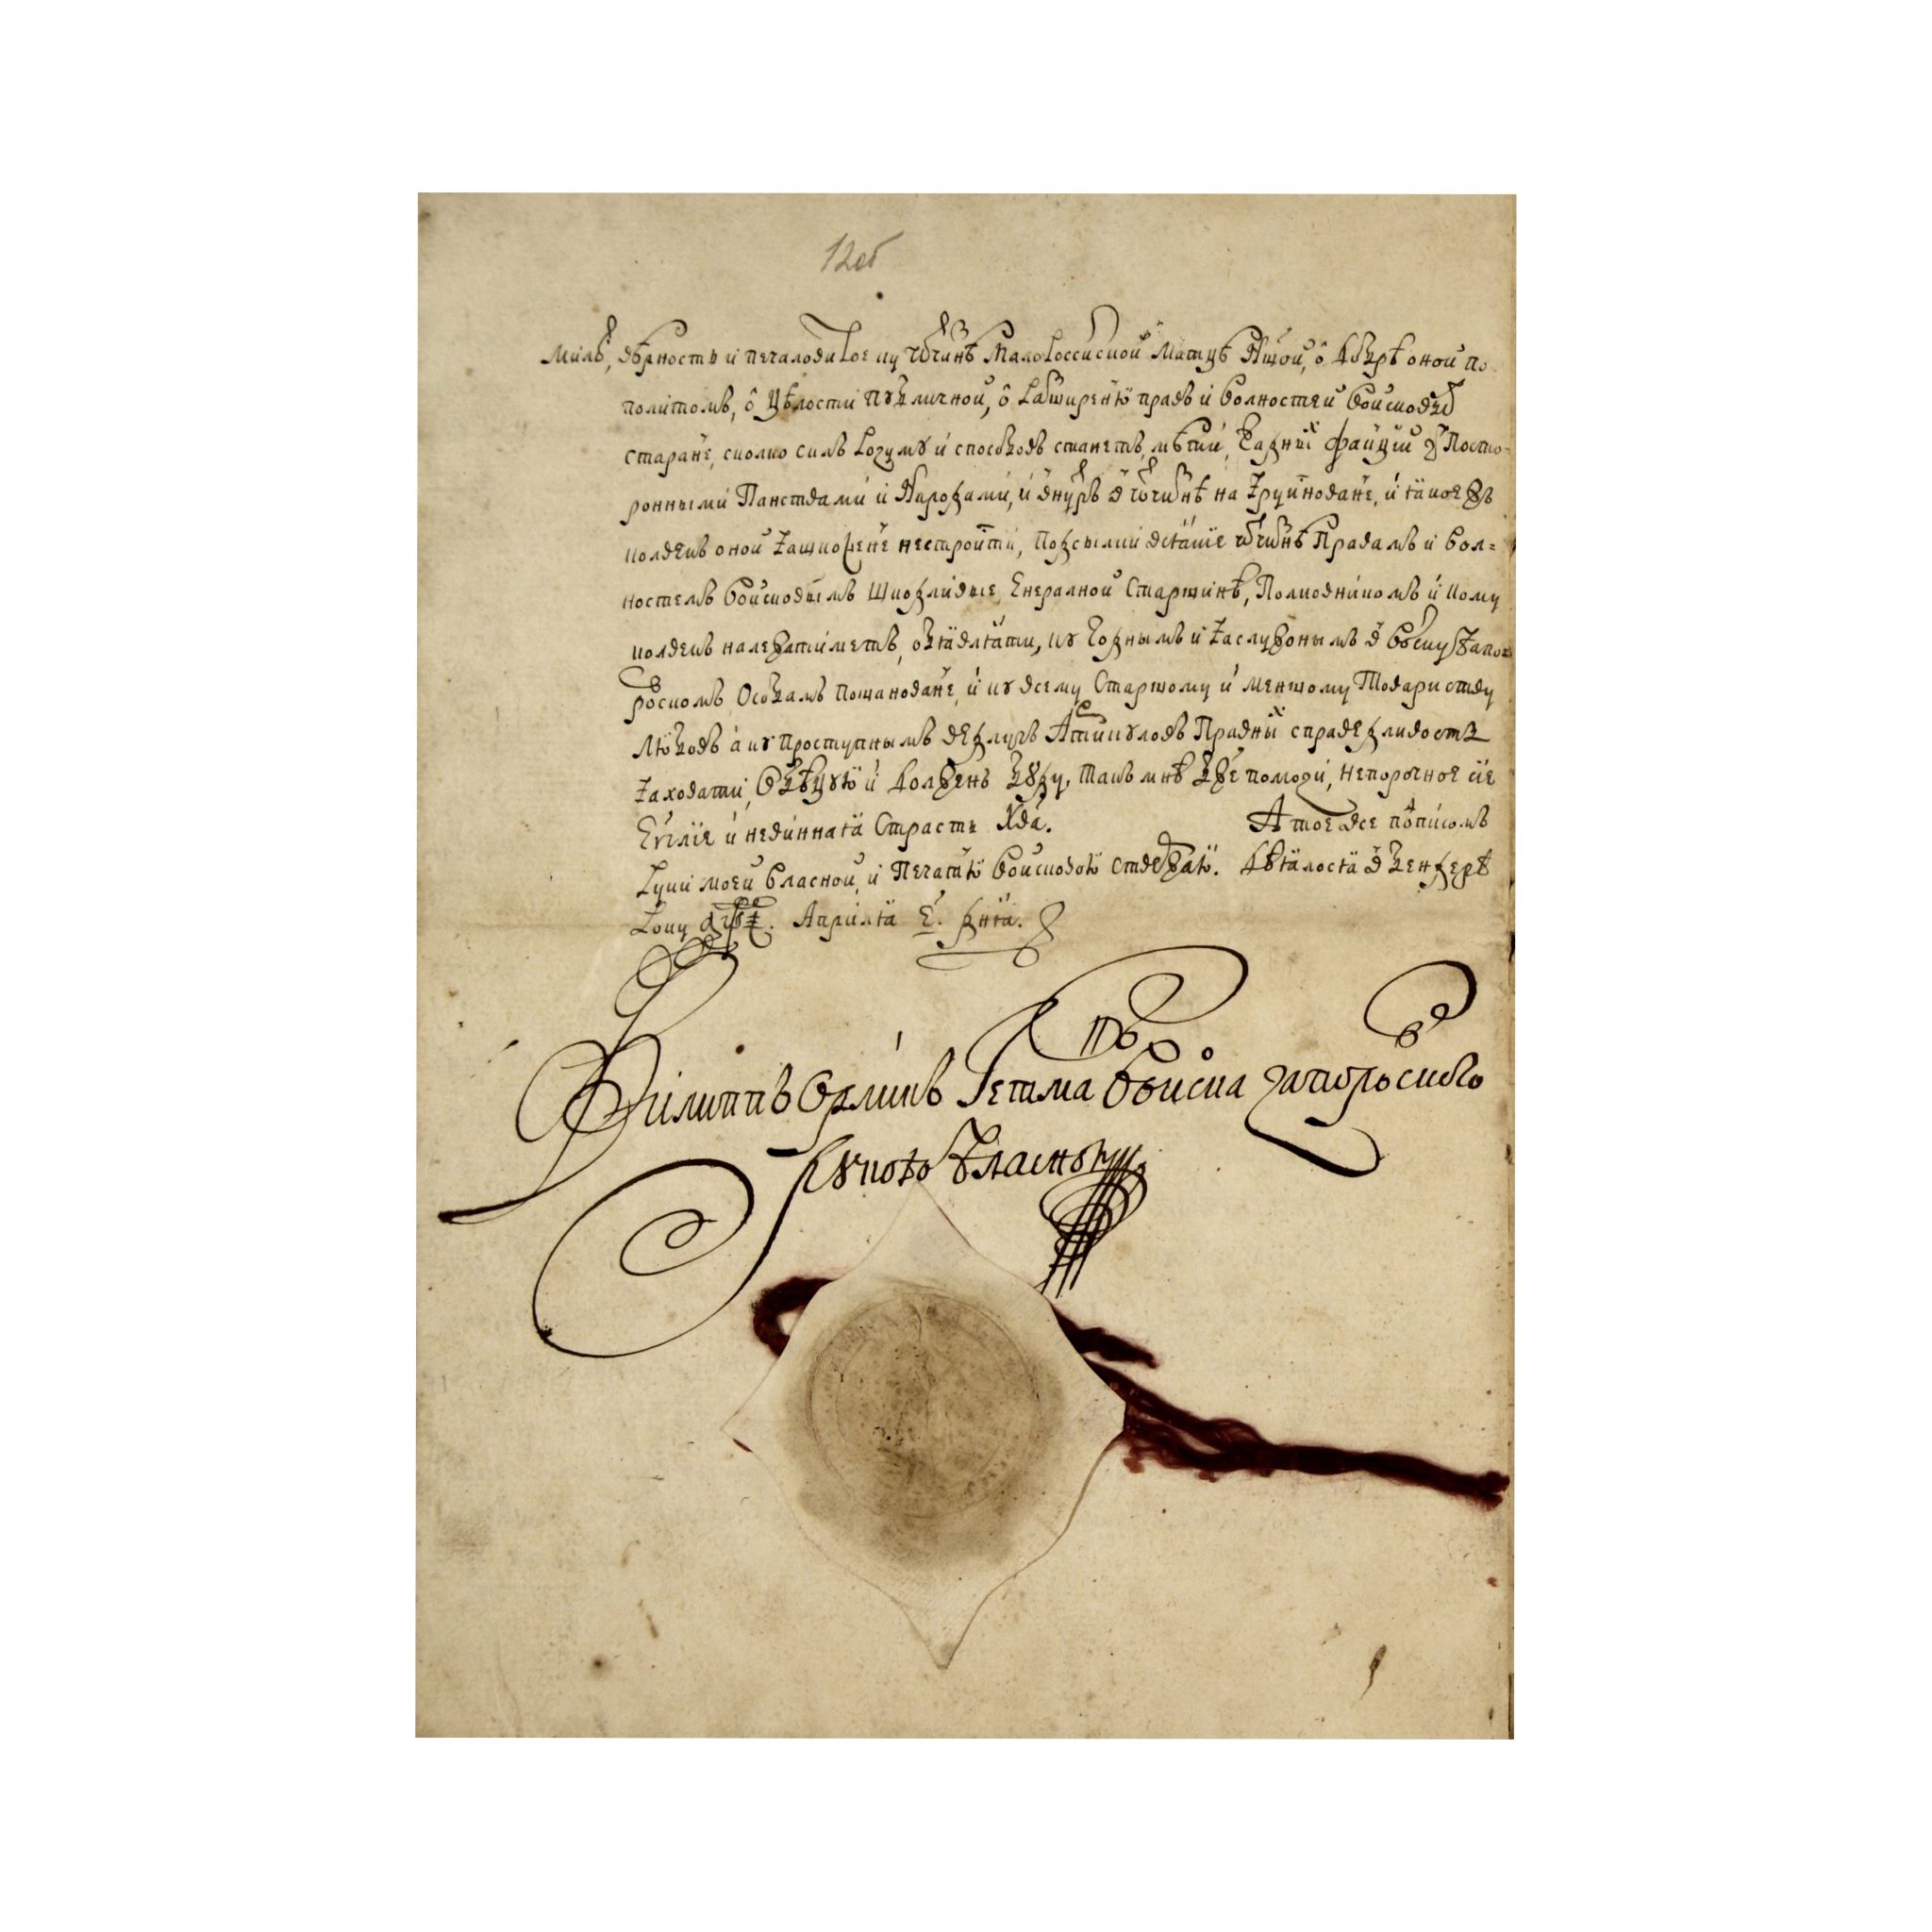 12об
милость, вѣрность и печаловитое ку отчизнѣ Малороссийской Матцѣ нашой, о добрѣ оной по-
политомъ, о цѣлости публичной, о разширенью правъ и волностей войсковыхъ
старанє, сколко силъ розуму и способовъ станетъ, мѣти, жадных факций з Посто-
ронными Панствами и народами, и внутръ в отчизнѣ на зруйнованє, и якоежъ
колвекъ оной зашкоженє нестроити, подсылки всякие отчизнѣ Правамъ и вол=
ностемъ войсковымъ Шкодливые Енералной Старшинѣ, Полковникомъ и кому
колвекъ належатиметъ, обявляти, ку годнымъ и заслужонымъ в войску Запо-
розскомъ Особамъ пошанованє, и ку всему Старшому и меншому Товариству
любовъ а ку проступнымъ ведлугъ Артикуловъ Правных справедливость
заховати, Обѣцую и должень буду, такъ мнѣ Бже помози, непорочное сие
Еѵглие и невинная Страсть Хва. А тое все подписомъ
руки моей власной, и Печатю войсковою ствержаю. Дѣялося в Бендерѣ
Року ҂аѱі. Априля е҃. дня.
Филиппъ Орликъ Гетманъ войска запорожского
рукою власною